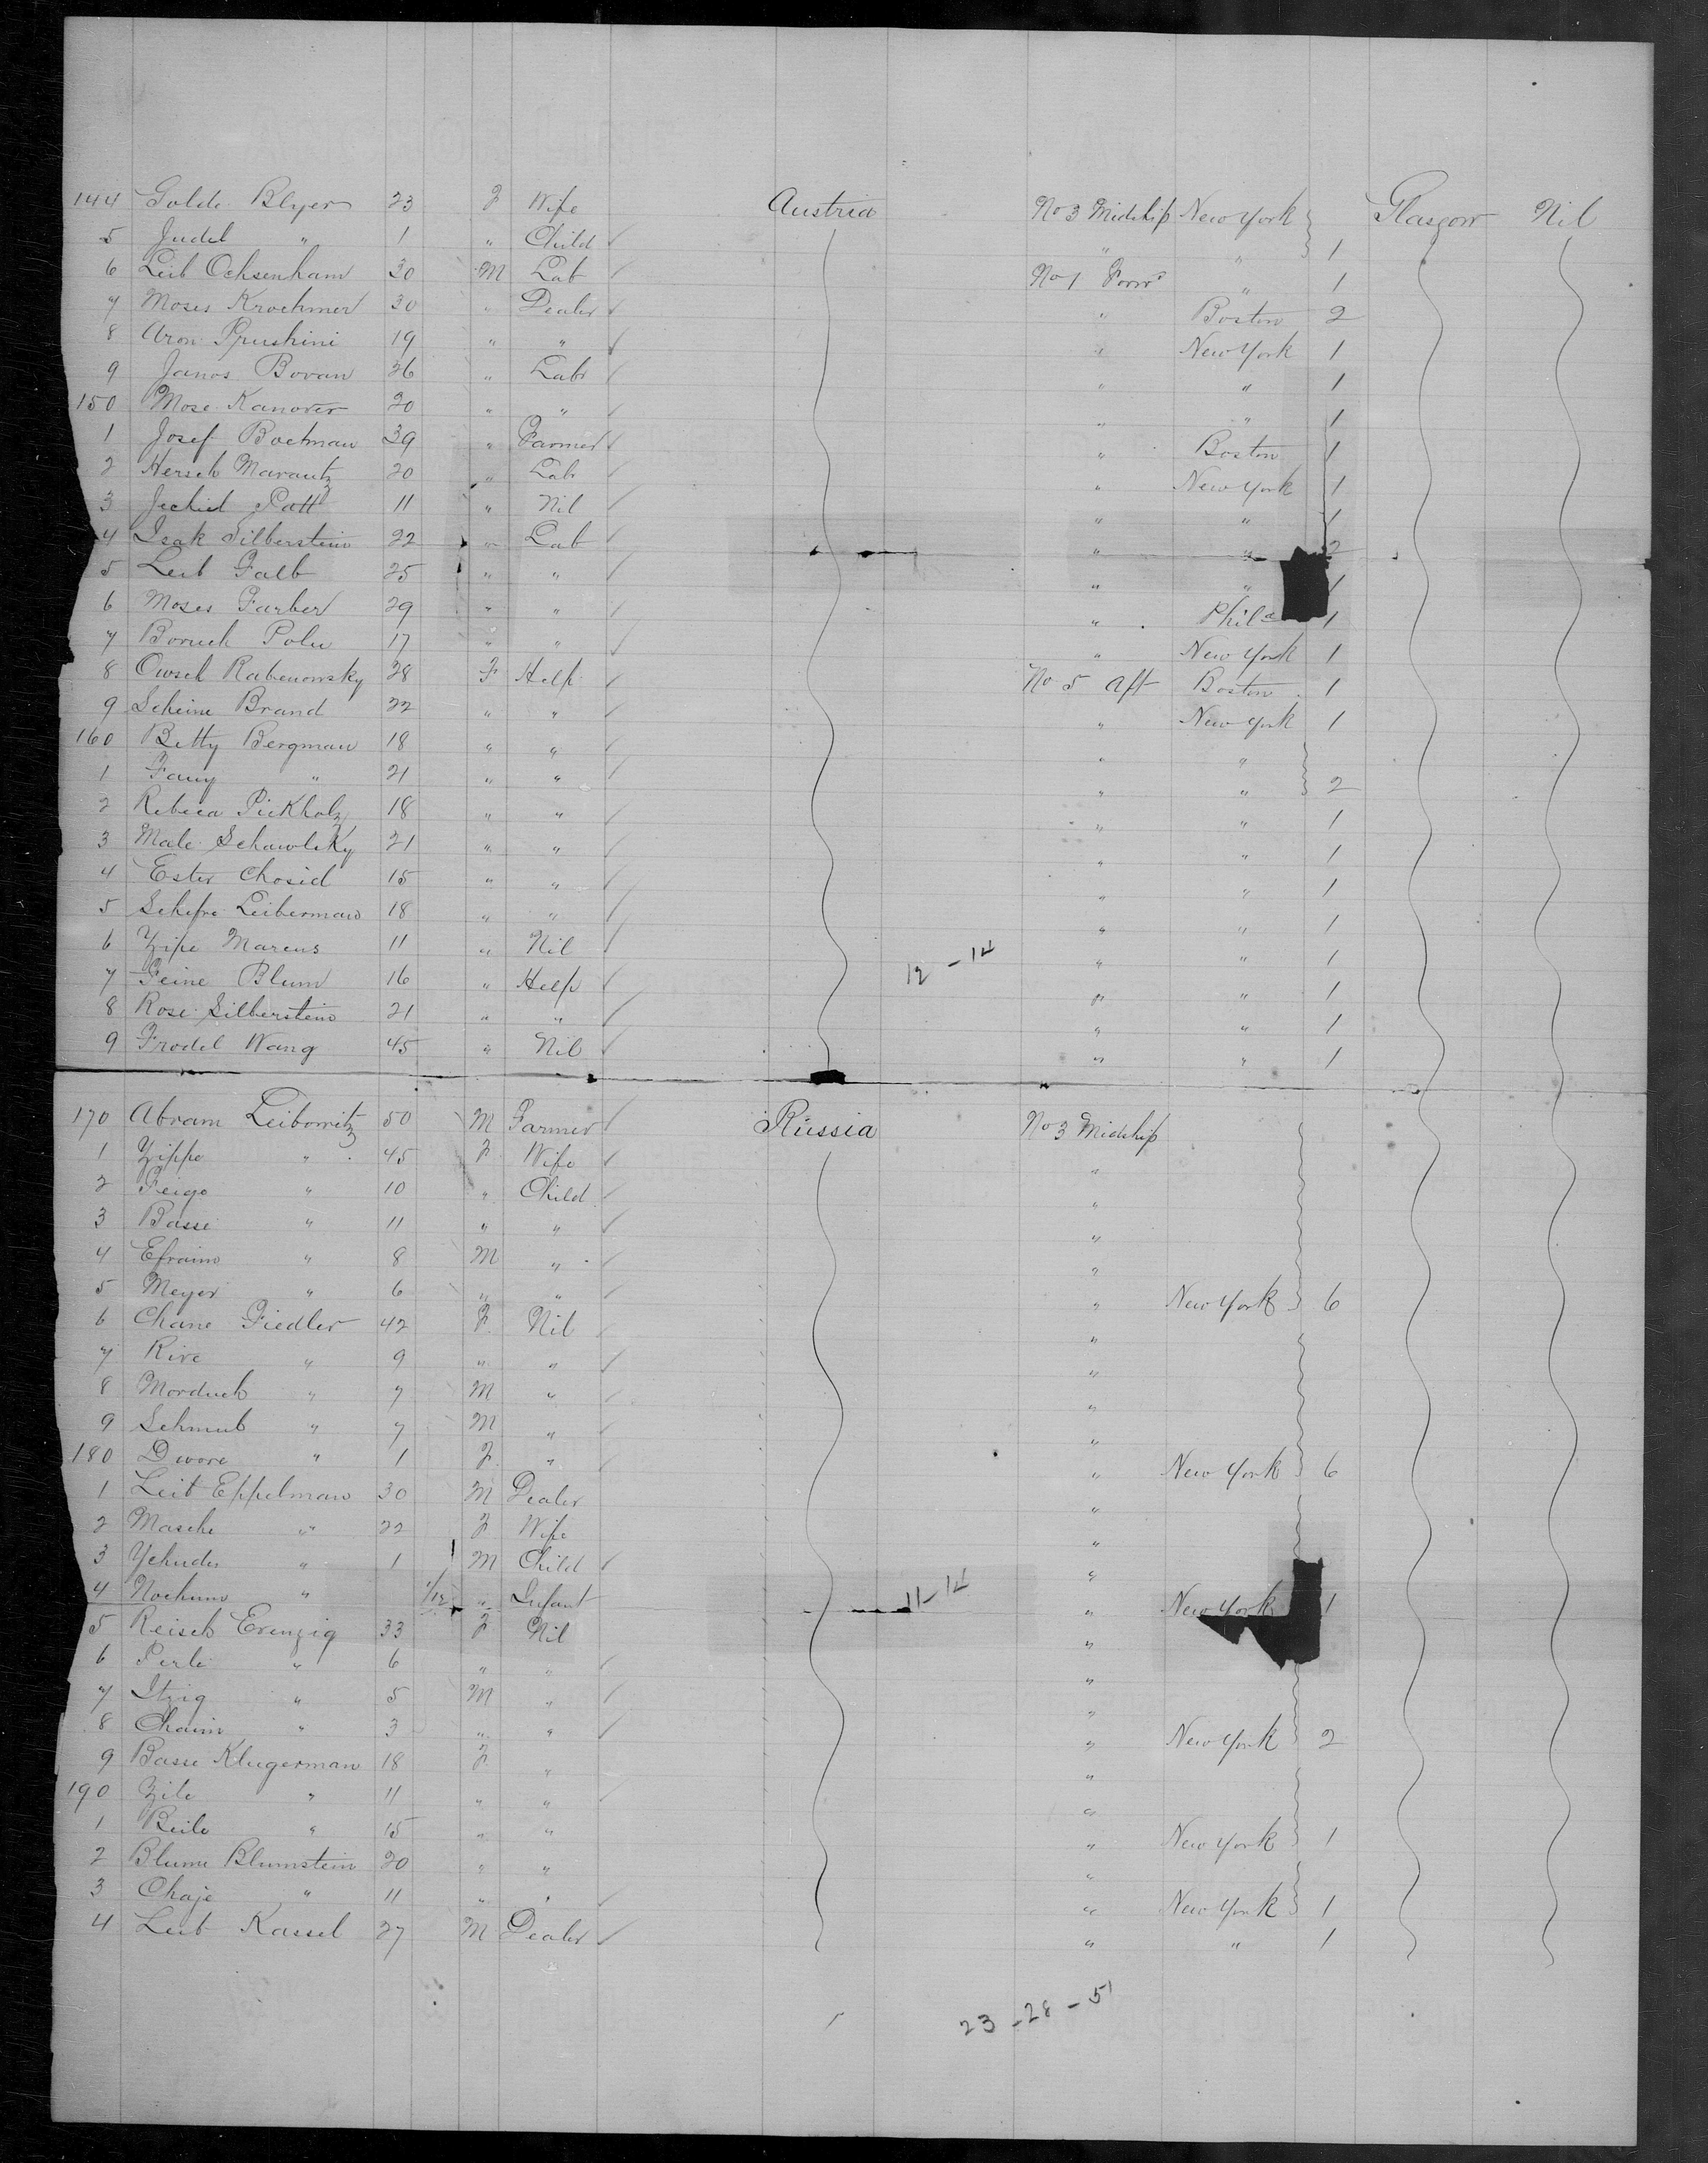 144 Golde Blyer 23 F Wife Austria No 3 Midship New York Glasgow Nil
5 Judel " 1 " Child " " 1
6 Leib Ochsenham 30 M Lab No 1 Forwd " 1
7 Moses Krochmer 30 " Dealer " Boston 2
8 Aron Prushini 19 " " " New York 1
9 Janos Bovan 26 " Labr " " 1
150 Mose Kanover 20 " " " " 1
1 Josef Boetman 39 " Farmer " Boston 1
2 Hersch Marantz 20 " Labr " New York 1
3 Jechiel Patt 11 " Nil " " 1
4 Isak Silberstein 22 " Lab " " 2
5 Leib Falb 25 " " " " 1
6 Moses Farber 29 " " " Phila 1
7 Boruch Polu 17 " " " New York 1
8 Owseh Rabenowsky 28 F Help No 5 Aft Boston 1
9 Scheine Brand 22 " " " New York 1
160 Betty Bergman 18 " " " "
1 Fany " 21 " " " " 2
2 Rebeca Pickholz 18 " " " " 1
3 Male Schawlsky 21 " " " " 1
4 Ester Chosid 15 " " " " 1
5 Schefre Leiberman 18 " " " " 1
6 Zipe Marcus 11 " Nil 12 - 14 " " 1
7 Feine Blum 16 " Help " " 1
8 Rose Silberstein 21 " " " " 1
9 Frodel Wang 45 " Nil " " 1
170 Abram Leibowitz 50 M Farmer Russia No 3 Midship
1 Zippe " 45 F Wife "
2 Feige " 10 " Child "
3 Basse " 11 " " "
4 Efraim " 8 M " "
5 Meyer " 6 " " " New York 6
6 Chane Fiedler 42 F Nil "
7 Rive " 9 " " "
8 Morduch " 7 M " "
9 Schmul " 7 M " "
180 Dwore " 1 F " " New York 6
1 Leib Eppelman 30 M Dealer "
2 Masche " 22 F Wife "
3 Yehuder " 1 M Child "
4 Nochum " 1/12 " Infant 11-14 " New York 1
5 Reisch Erenzig 33 F Nil "
6 Perle " 6 " " "
7 Itzig " 5 M " "
8 Chaim " 3 " " " New York 2
9 Basse Klugerman 18 F " "
190 Zile " 11 " " "
1 Beile " 15 " " " New York 1
2 Blume Blumstein 20 " " "
3 Chaje " 11 " " " New York 1
4 Leib Kassel 27 M Dealer " " 1
23 - 28 - 51